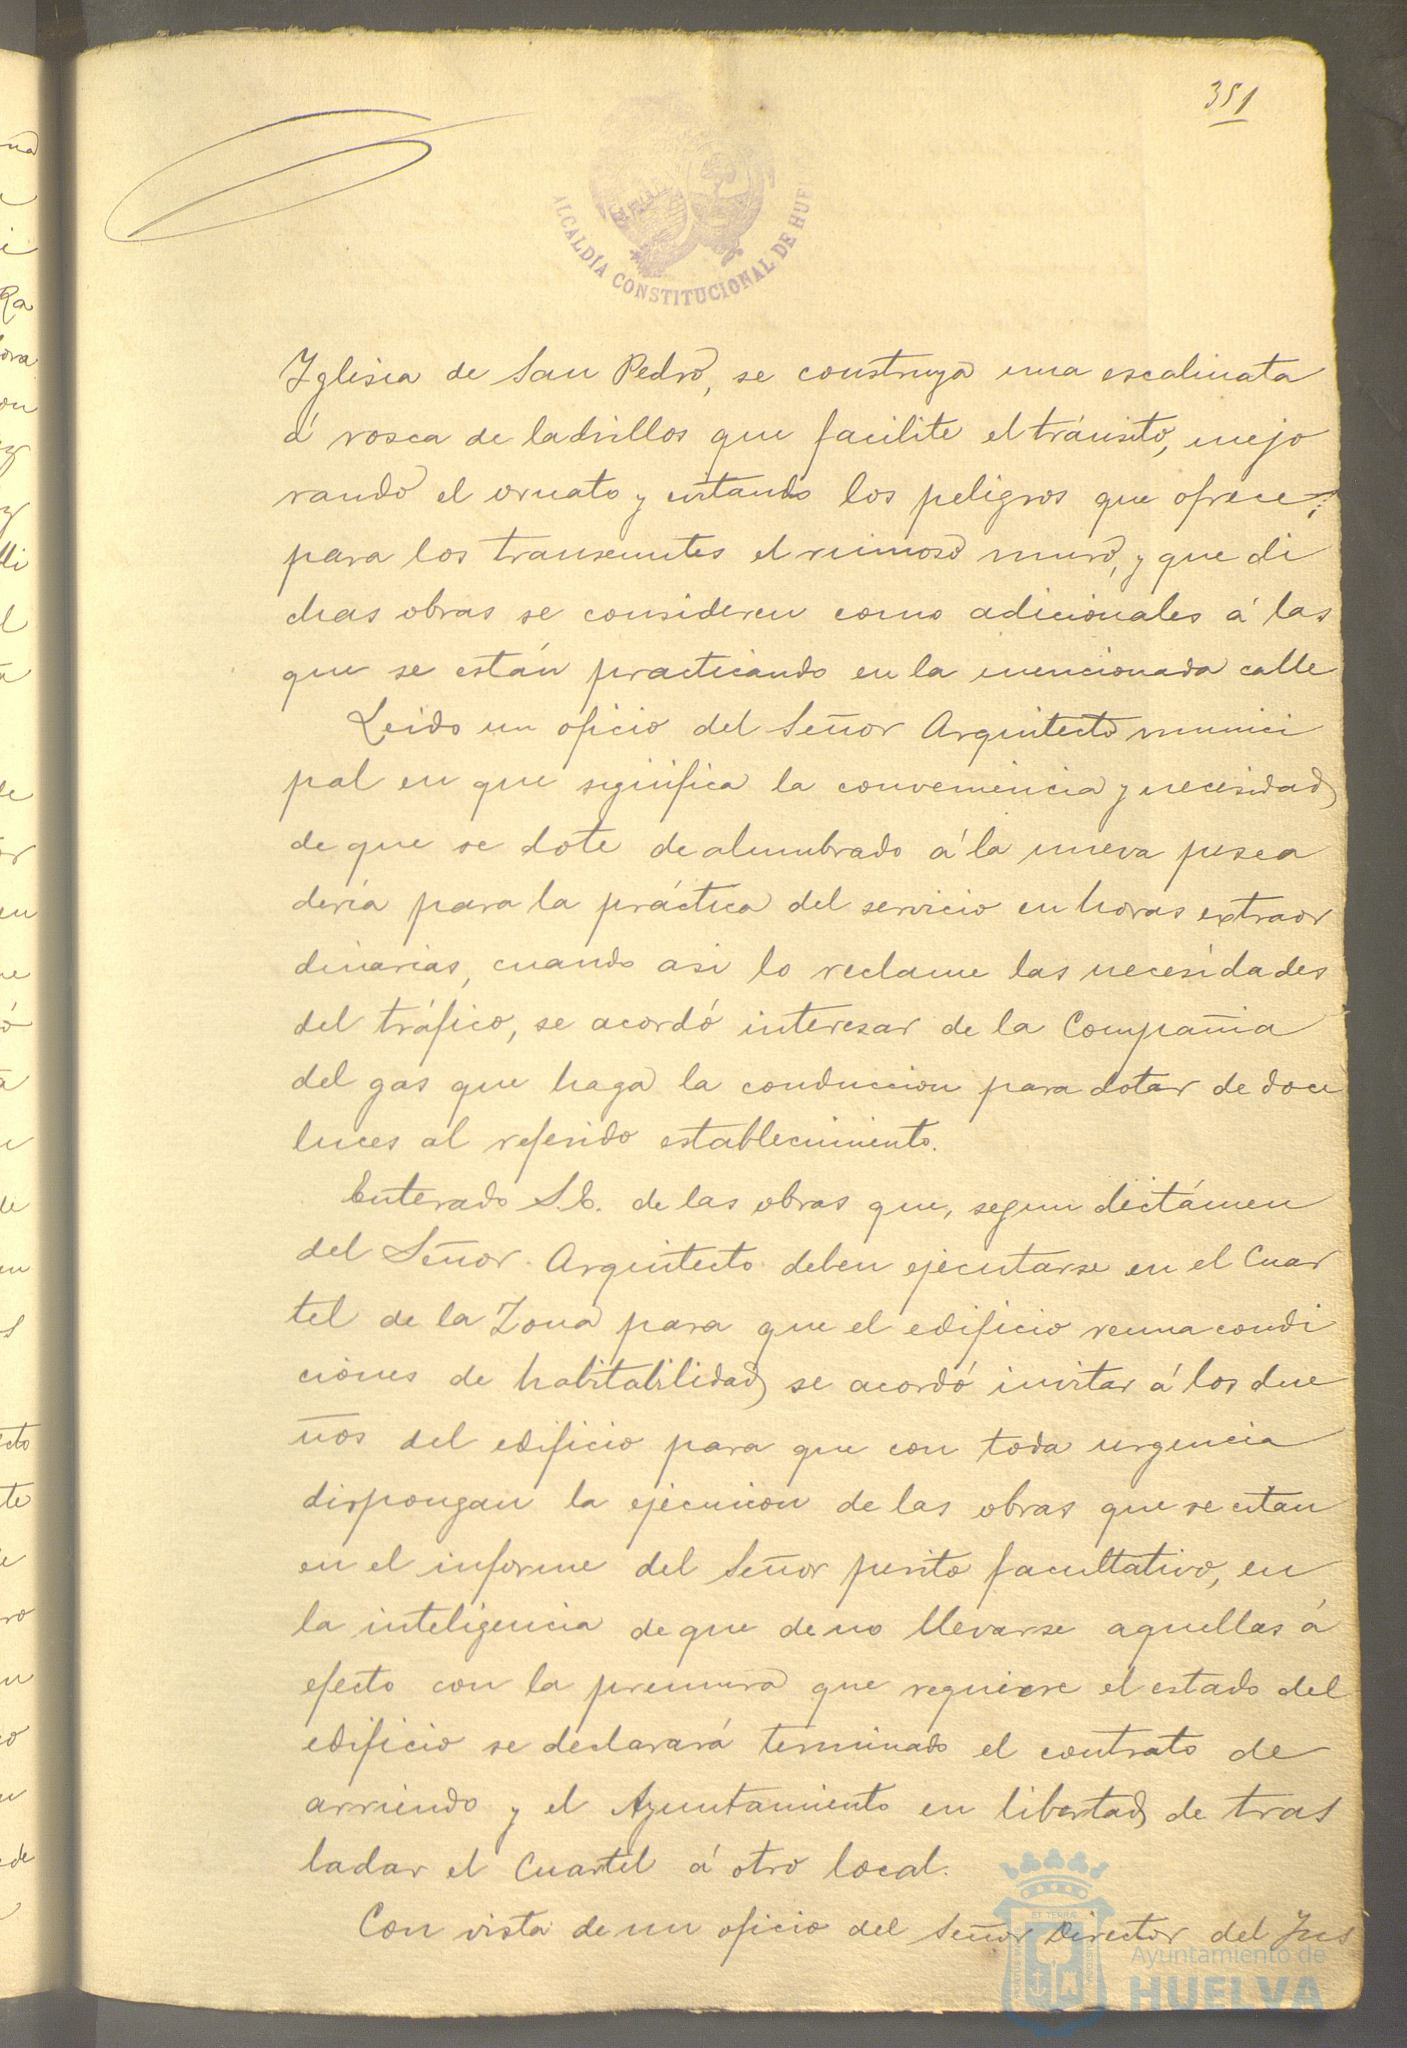 351
ALCALDÍA CONSTITUCIONAL DE HUE
Yglesia de San Pedro, se construya una escalinata
á rosca de ladrillos que facilite el tránsito, mejo
rando el ornato y evitando los peligros que ofrece,
para los transeuntes el ruinoso muro, y que di
chas obras se consideren como adicionales á las
que se están practicando en la mencionada calle
Leido un oficio del Señor Arquitecto munici
pal en que significa la conveniencia y necesidad
de que se dote de alumbrado á la nueva pesca
dería para la práctica del servicio en horas extraor
dinarias, cuando asi lo reclame las necesidades
del tráfico, se acordó interesar de la Compañia
del gas que haga la conduccion para dotar de doce
luces al referido establecimiento.
Enterado S.E. de las obras que, segun dictámen
del Señor Arquitecto deben ejecutarse en el Cuar
tel de la Zona para que el edificio reuna condi
ciones de habitabilidad se acordó invitar á los due
ños del edificio para que con toda urgencia
dispongan la ejecucion de las obras que se citan
en el informe del Señor perito facultativo, en
la inteligencia de que de no llevarse aquellas á
efecto con la premura que requiere el estado del
edificio se declarará terminado el contrato de
arriendo y el Ayuntamiento en libertad de tras
ladar el Cuartel á otro local.
Con vista de un oficio del Señor Director del Yns
Ayuntamiento de
HUELVA